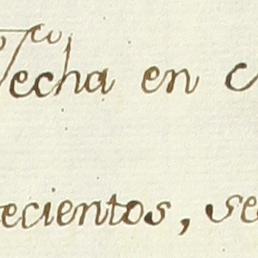 fecha en
ecientos, se